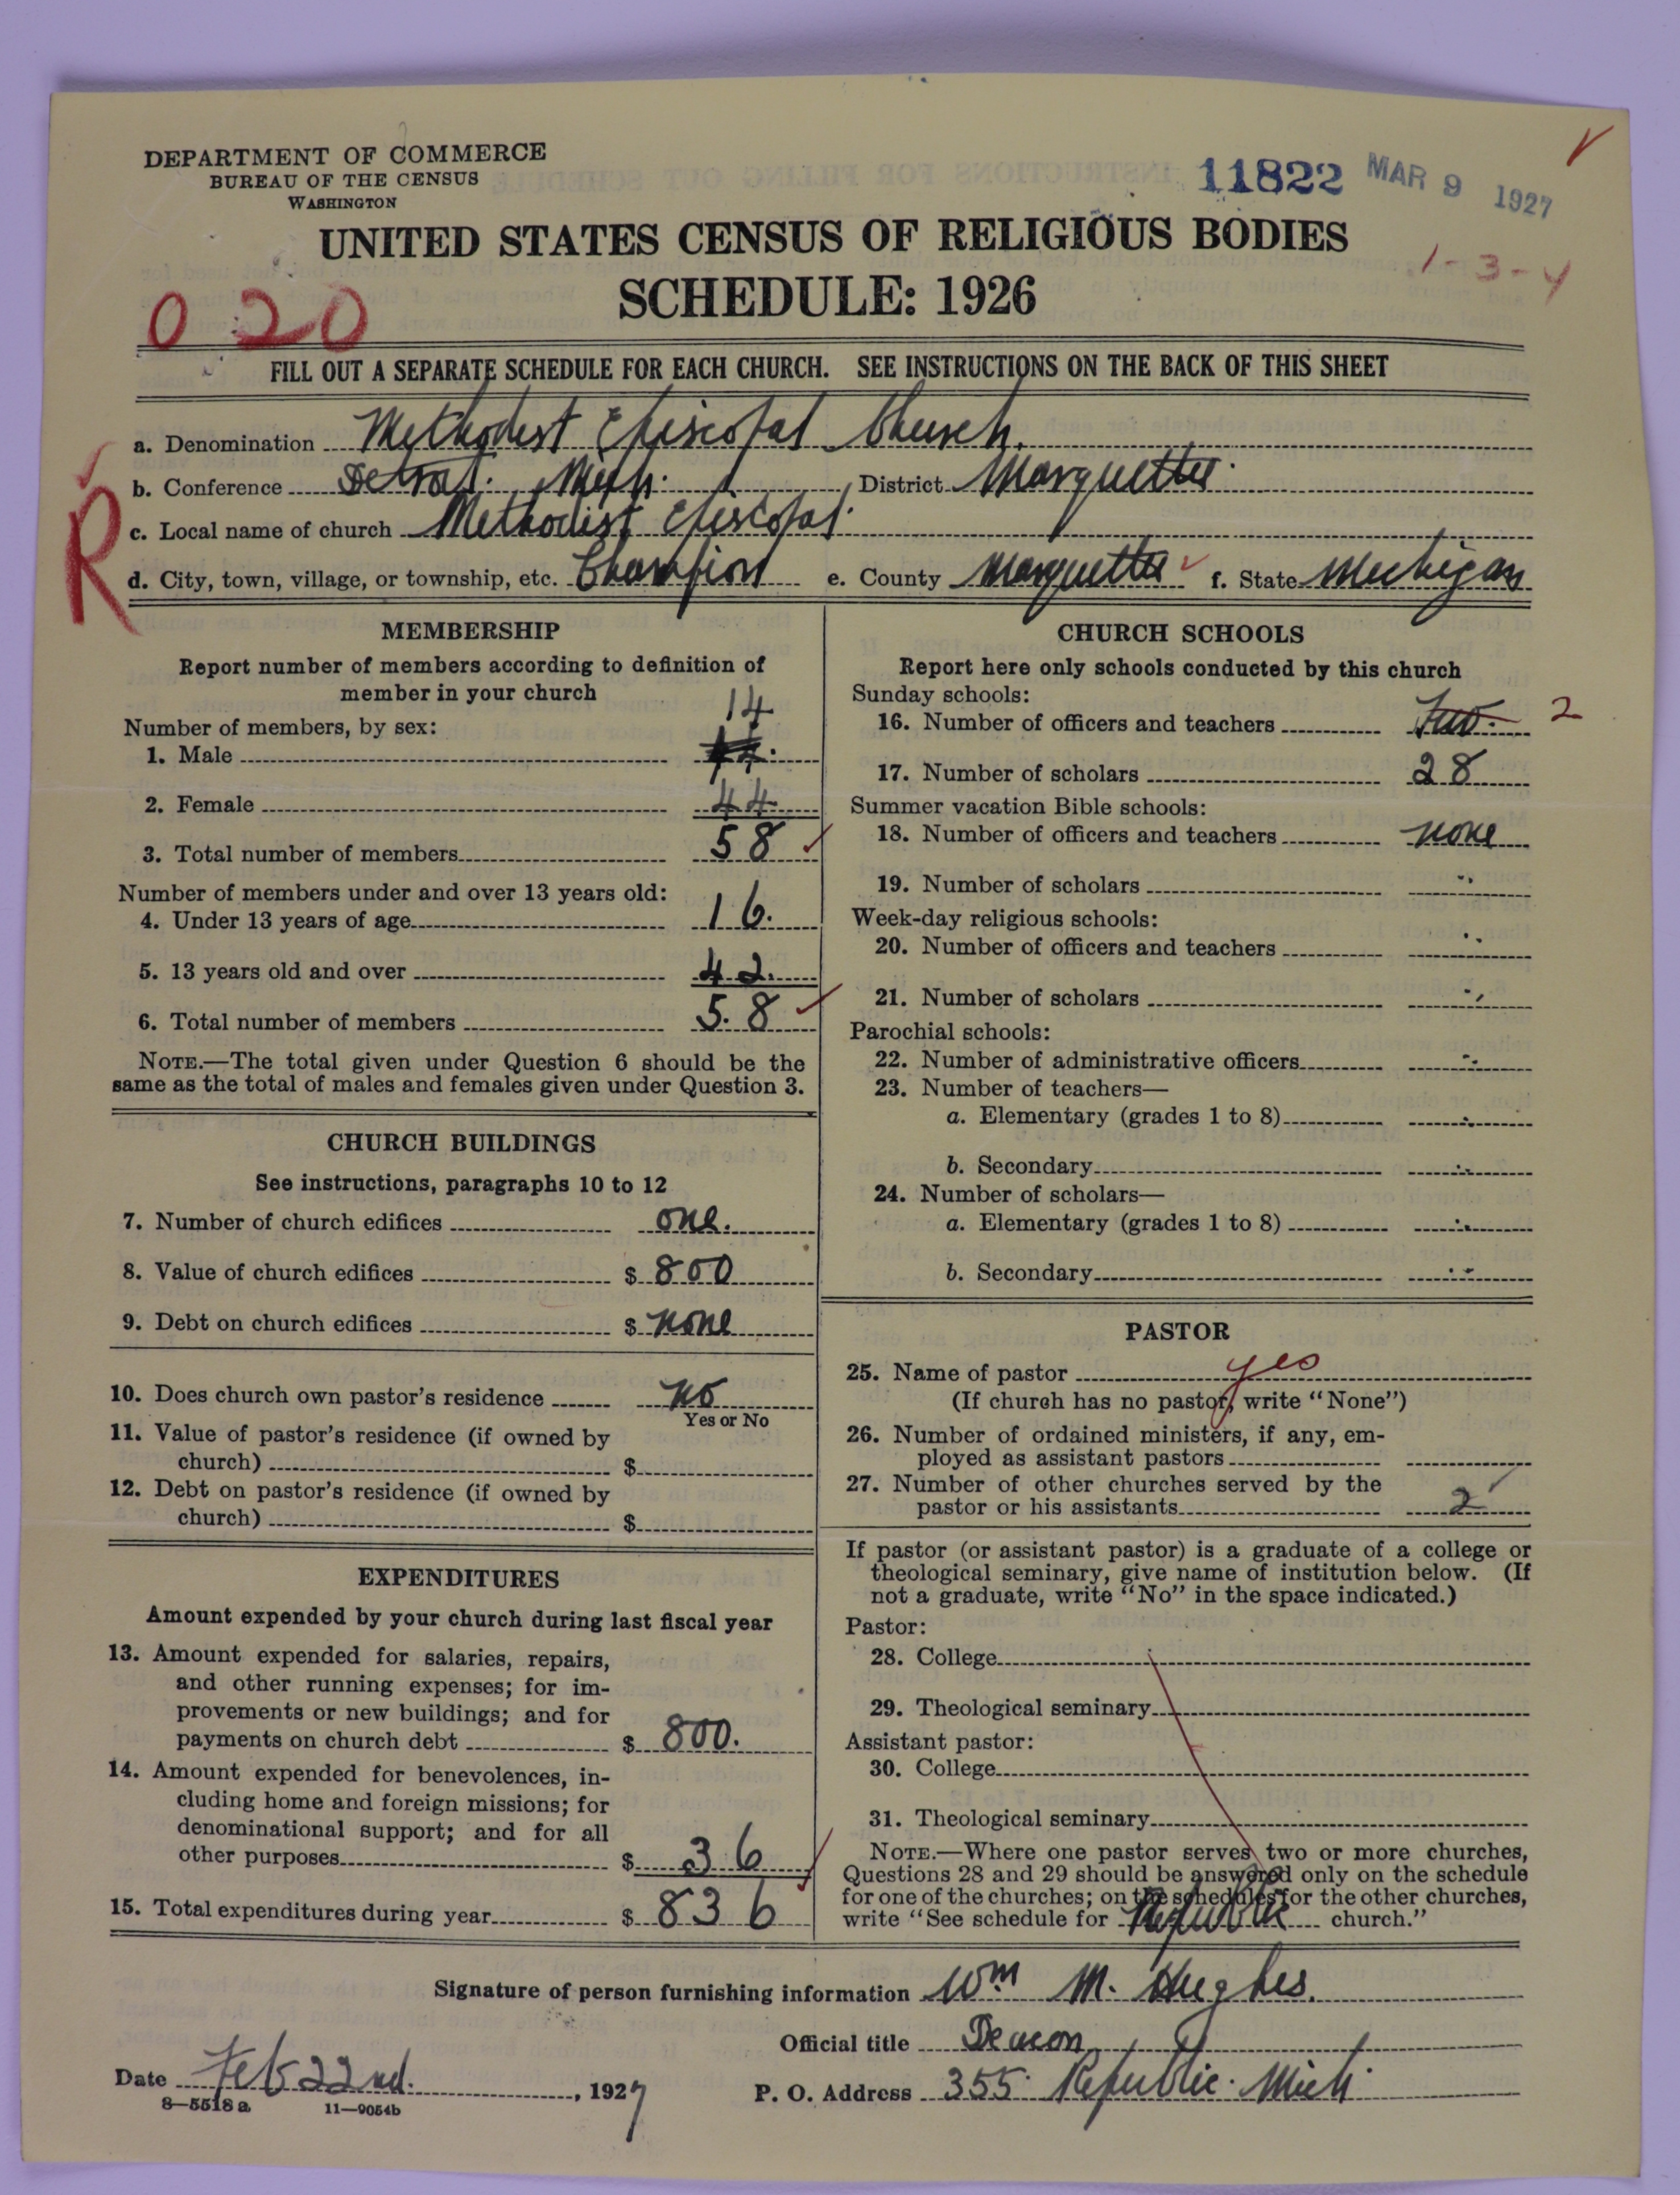 DEPARTMENT OF COMMERCE
BUREAU OF THE CENSUS
WASHINGTON
11822 MAR 9 1927
UNITED STATES CENSUS OF RELIGIOUS BODIES
1-3-4
SCHEDULE: 1926
0 20
FILL OUT A SEPARATE SCHEDULE FOR EACH CHURCH. SEE INSTRUCTIONS ON THE BACK OF THIS SHEET
a. Denomination Methodist Episcopal Church.
b. Conference Detroit. Mich. District Marquette.
R
c. Local name of church Methodist Episcopal.
d. City, town, village, or township, etc. Champion e. County Marquette f. State Michigan
MEMBERSHIP
Report number of members according to definition of
member in your church
14
Number of members, by sex:
1. Male
2. Female 44
3. Total number of members 58
Number of members under and over 13 years old:
4. Under 13 years of age 16.
5. 13 years old and over 42.
6. Total number of members 58
NOTE.—The total given under Question 6 should be the
same as the total of males and females given under Question 3.
CHURCH BUILDINGS
See instructions, paragraphs 10 to 12
7. Number of church edifices one.
8. Value of church edifices $ 800
9. Debt on church edifices $ none
10. Does church own pastor's residence no
Yes or No
11. Value of pastor's residence (if owned by
church) $
12. Debt on pastor's residence (if owned by
church) $
EXPENDITURES
Amount expended by your church during last fiscal year
13. Amount expended for salaries, repairs,
and other running expenses; for im-
provements or new buildings; and for
payments on church debt $ 800.
14. Amount expended for benevolences, in-
cluding home and foreign missions; for
denominational support; and for all
other purposes $ 36
15. Total expenditures during year $ 836
CHURCH SCHOOLS
Report here only schools conducted by this church
Sunday schools:
16. Number of officers and teachers Two. 2
17. Number of scholars 28
Summer vacation Bible schools:
18. Number of officers and teachers none
19. Number of scholars "
Week-day religious schools:
20. Number of officers and teachers "
21. Number of scholars "
Parochial schools:
22. Number of administrative officers "
23. Number of teachers—
a. Elementary (grades 1 to 8) "
b. Secondary "
24. Number of scholars—
a. Elementary (grades 1 to 8) "
b. Secondary "
PASTOR
25. Name of pastor yes
(If church has no pastor, write "None")
26. Number of ordained ministers, if any, em-
ployed as assistant pastors
27. Number of other churches served by the
pastor or his assistants 2
If pastor (or assistant pastor) is a graduate of a college or
theological seminary, give name of institution below. (If
not a graduate, write "No" in the space indicated.)
Pastor:
28. College
29. Theological seminary
Assistant pastor:
30. College
31. Theological seminary
NOTE.—Where one pastor serves two or more churches,
Questions 28 and 29 should be answered only on the schedule
for one of the churches; on the schedules for the other churches,
write "See schedule for Republic church."
Signature of person furnishing information Wm M. Hughes.
Official title Deacon
Date Feb 22nd. , 1927 P. O. Address 355 Republic. Mich.
8—5518 a 11—9054b